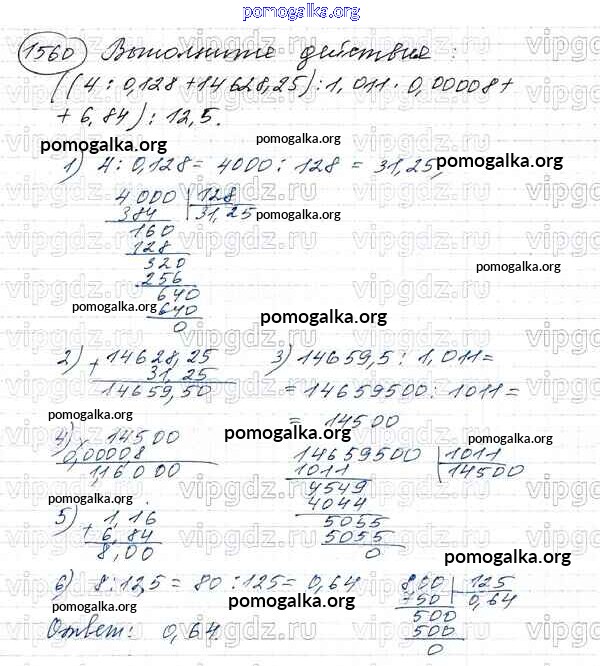 pomogalka.org
1560 Выполните действия:
((4 : 0,128 + 14628,25) : 1,011 · 0,00008 +
+ 6,84) : 12,5.
pomogalka.org
pomogalka.org
pomogalka.org
1) 4 : 0,128 = 4000 : 128 = 31,25,
4000 | 128
384 | 31,25
pomogalka.org
160
128
320
256
pomogalka.org
pomogalka.org
640
640
0
pomogalka.org
2) + 14628,25
31,25
14659,50
3) 14659,5 : 1,011 =
= 14659500 : 1011 =
= 14500
pomogalka.org
pomogalka.org
pomogalka.org
4) × 14500
0,00008
1,16000
14659500 | 1011
1011 | 14500
4549
4044
5055
5055
0
pomogalka.org
5) + 1,16
6,84
8,00
pomogalka.org
pomogalka.org
6) 8 : 12,5 = 80 : 125 = 0,64
800 | 125
750 | 0,64
500
500
0
pomogalka.org
pomogalka.org
pomogalka.org
Ответ: 0,64.
vipgdz.ru